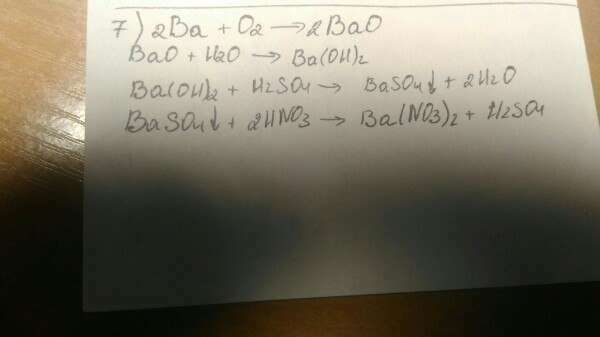 7) 2Ba + O2 → 2BaO
BaO + H2O → Ba(OH)2
Ba(OH)2 + H2SO4 → BaSO4↓ + 2H2O
BaSO4↓ + 2HNO3 → Ba(NO3)2 + H2SO4